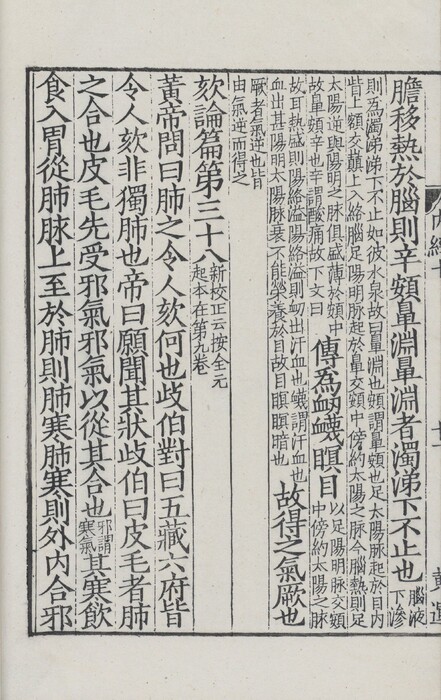 膽移熱於腦則辛頞鼻淵鼻淵者濁涕下不止也腦液下滲
則爲濁涕涕下不止如彼水泉故曰鼻淵也頞謂鼻頞也足太陽脉起於目內
眥上額交巔上入絡腦足陽明脉起於鼻交頞中傍約太陽之脉今腦熱則足
太陽逆與陽明之脉俱盛薄於頞中故鼻頞辛也辛謂酸痛故下文曰傳爲衄衊瞑目以足陽明脉交頞中傍約太陽之脉
故耳熱盛則陽絡溢陽絡溢則衄出汗血也衊謂汗血也血出甚陽明太陽脉衰不能榮養於目故目瞑瞑暗也故得之氣厥也
厥者氣逆也皆
由氣逆而得之
欬論篇第三十八新校正云按全元起本在第九卷
黃帝問曰肺之令人欬何也歧伯對曰五藏六府皆
令人欬非獨肺也帝曰願聞其狀歧伯曰皮毛者肺
之合也皮毛先受邪氣邪氣以從其合也邪謂寒氣其寒飲
食入胃從肺脉上至於肺則肺寒肺寒則外內合邪